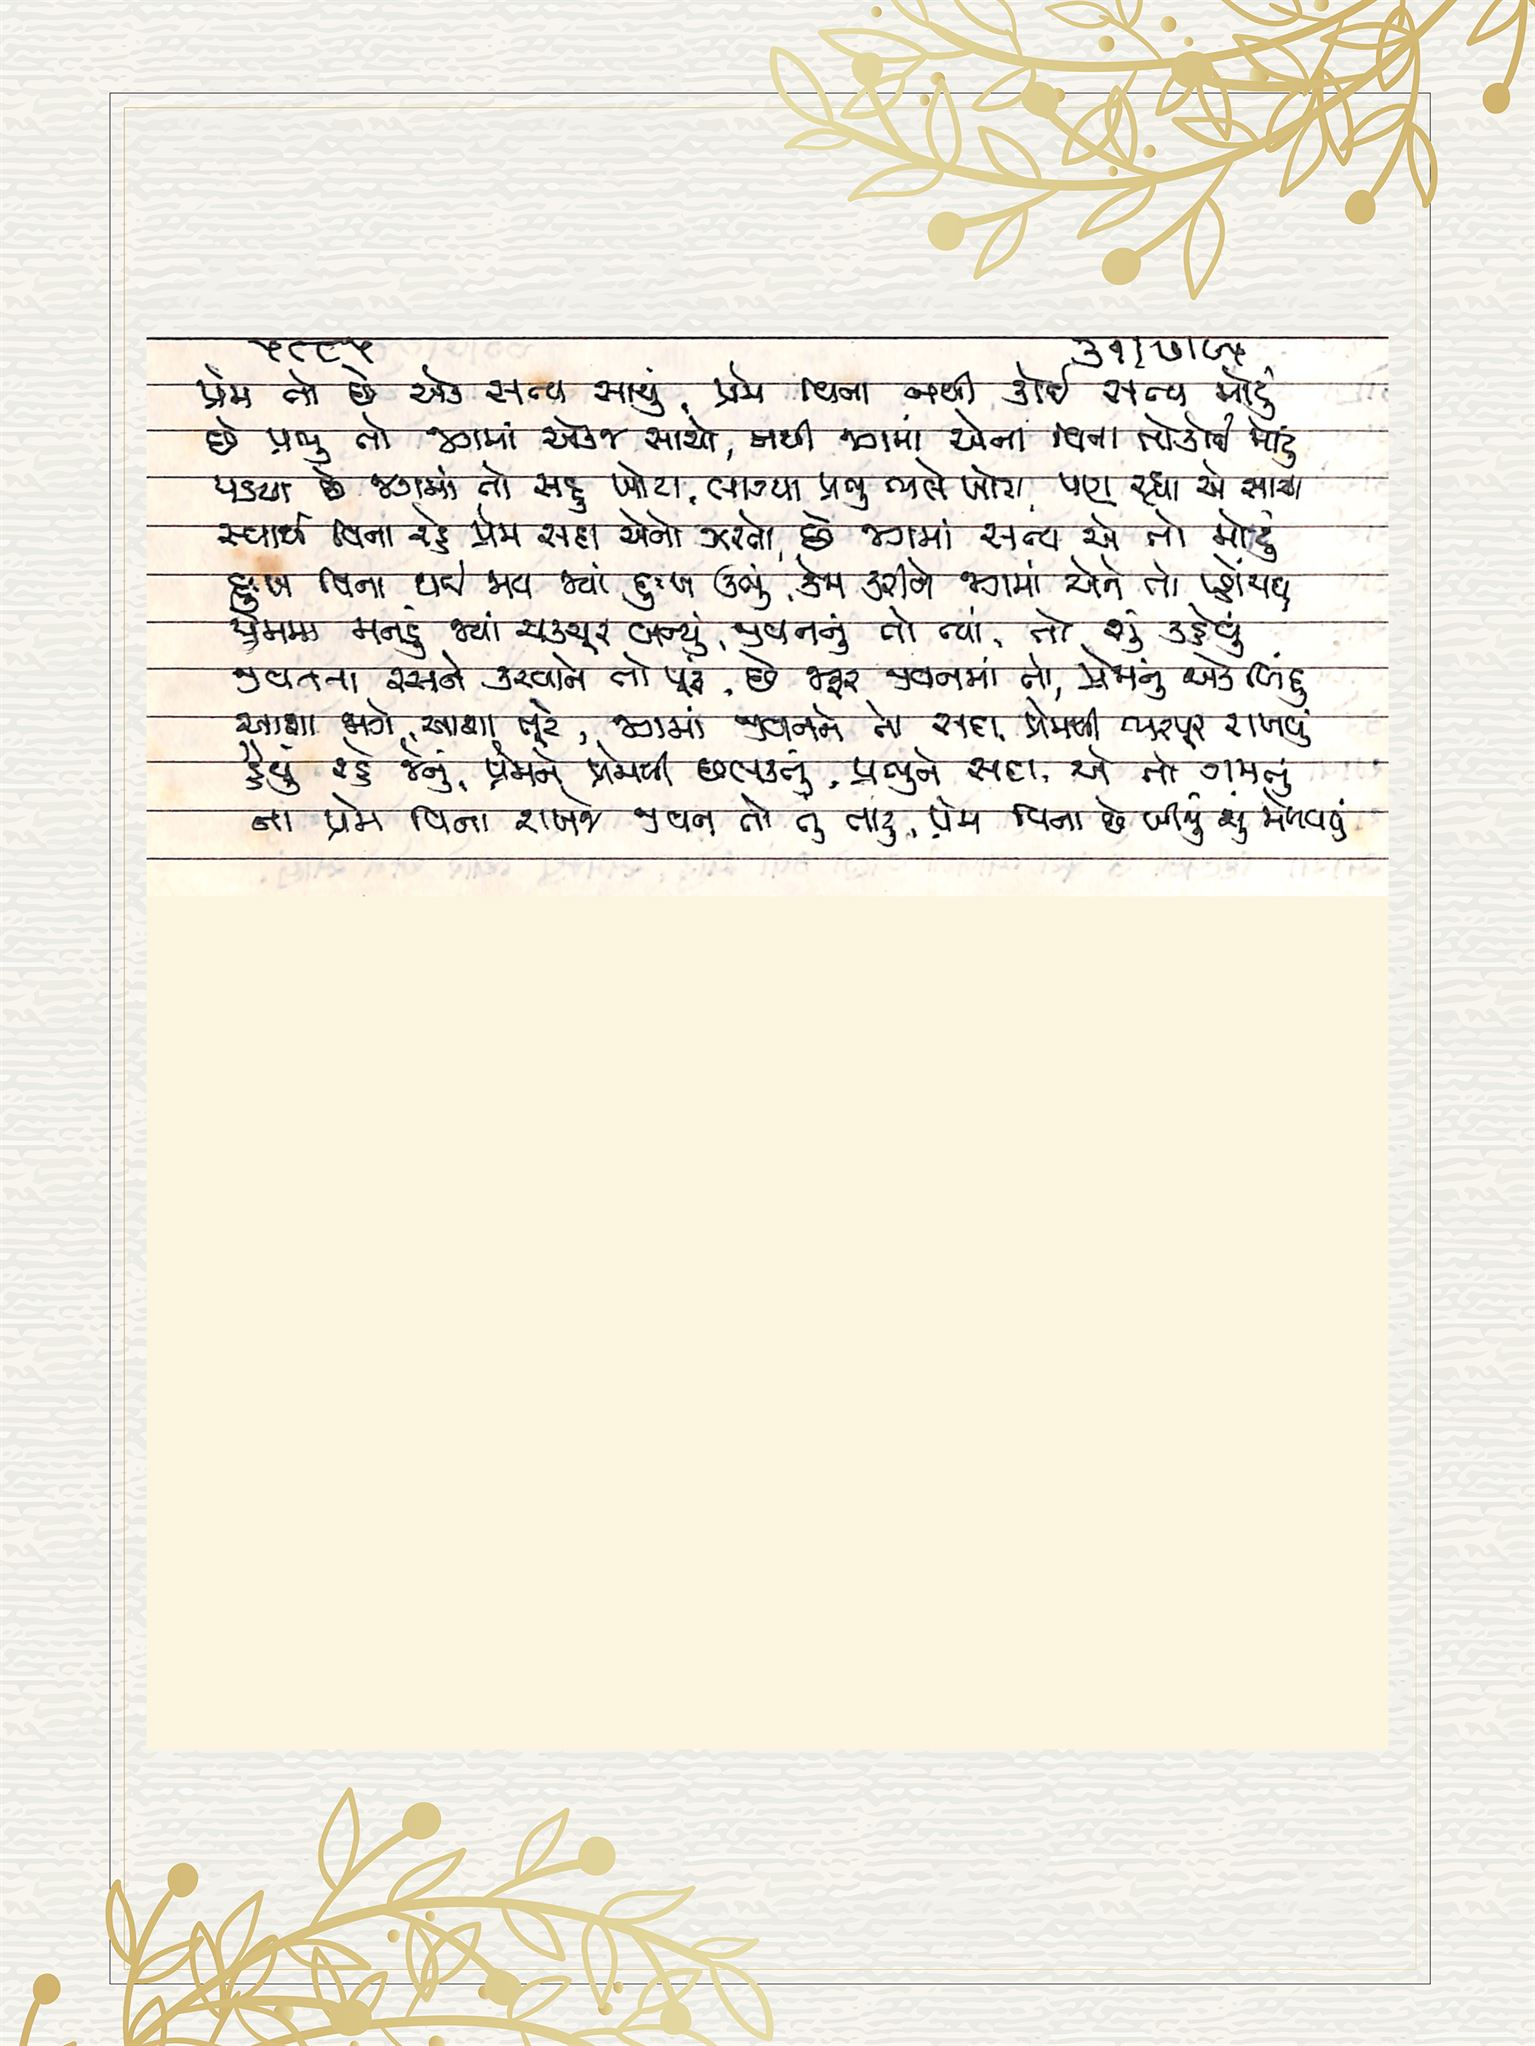 પ્રેમ તો છે એક સત્ય સાચું, પ્રેમ વિના નથી કોઈ સત્ય મોટું
છે પ્રભુ તો જગમાં એકજ સાચો, નથી જગમાં એના વિના તો કોઈ મોટું
પડયા છે જગમાં તો સહુ ખોટા, લાગ્યા પ્રભુ ભલે ખોટા પણ રહ્યા એ સાચા
સ્વાર્થ વિના રહે પ્રેમ સદા એનો ઝરતો, છે જગમાં સત્ય એ તો મોટું
દુઃખ વિના થઈ મન જ્યાં દુઃખ ઊભું, કેમ કરીને જગમાં એને તો
પ્રેમમાં મનડું જ્યાં ચકચૂર બન્યું, જીવનનું તો ત્યાં, તો શું કહેવું
જીવનના રસને કરવાને તો પૂરું, છે જરૂર જીવનમાં તો, પ્રેમનું એક બિંદુ
આશા જાગે, આશા તૂટે, જગમાં જીવનને તો સદા, પ્રેમથી ભરપૂર રાખવું
હૈયું રહે જેનું, પ્રેમને પ્રેમથી છલકતું, પ્રભુને સદા, એ તો ગમતું
ના પ્રેમ વિના રાખજે જીવન તો તું તારું, પ્રેમ વિના છે બીજું શું મેળવવું